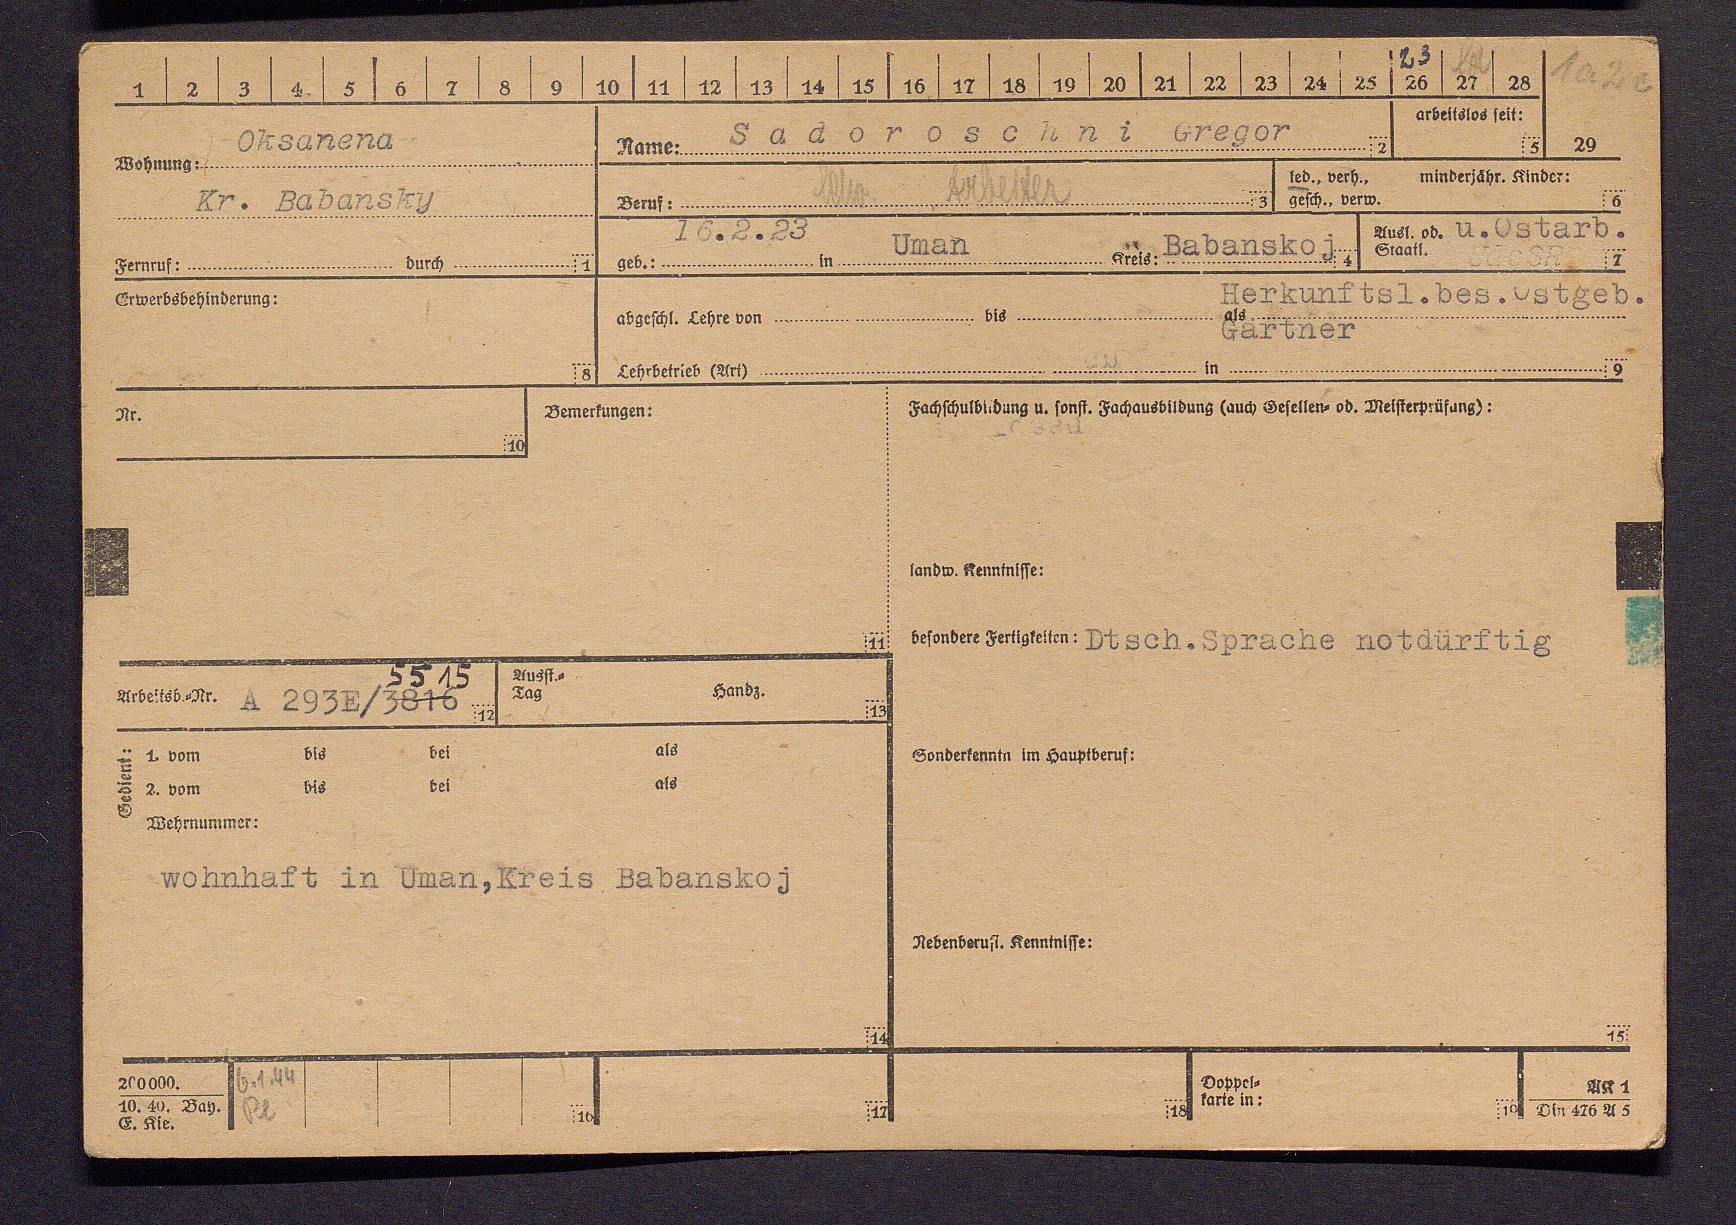 23
1 2 3 4 5 6 7 8 9 10 11 12 13 14 15 16 17 18 19 20 21 22 23 24 25 26 27 28
1a2c
arbeitslos seit:
5
29
Wohnung: Oksanena
Kr. Babansky
Fernruf: durch 1
Name: Sadoroschni Gregor 2
Beruf: Arbeiter 3
led., verh., minderjähr. Kinder:
gesch., verw. 6
geb.: 16.2.23 in Uman Kreis: Babanskoj 4
Ausl. od. u.Ostarb.
Staatl. UdSSR 7
Erwerbsbehinderung:
8
Herkunftsl.bes.Ostgeb.
abgeschl. Lehre von bis als
Gärtner
Lehrbetrieb (Art) in 9
Nr.
10
Bemerkungen:
11
Fachschulbildung u. sonst. Fachausbildung (auch Gesellen- od. Meisterprüfung):
landw. Kenntnisse:
besondere Fertigkeiten: Dtsch.Sprache notdürftig
5515
Arbeitsb.-Nr. A 293E/3816 12
Ausst.-
Tag Handz.
13
Gedient:
1. vom bis bei als
2. vom bis bei als
Wehrnummer:
wohnhaft in Uman,Kreis Babanskoj
14
Sonderkenntn im Hauptberuf:
Nebenberufl. Kenntnisse:
15
200000.
10. 40. Bay.
E. Kie.
6.1.44
Pl
16
17
18
Doppel-
karte in:
19
AK 1
Din 476 A 5